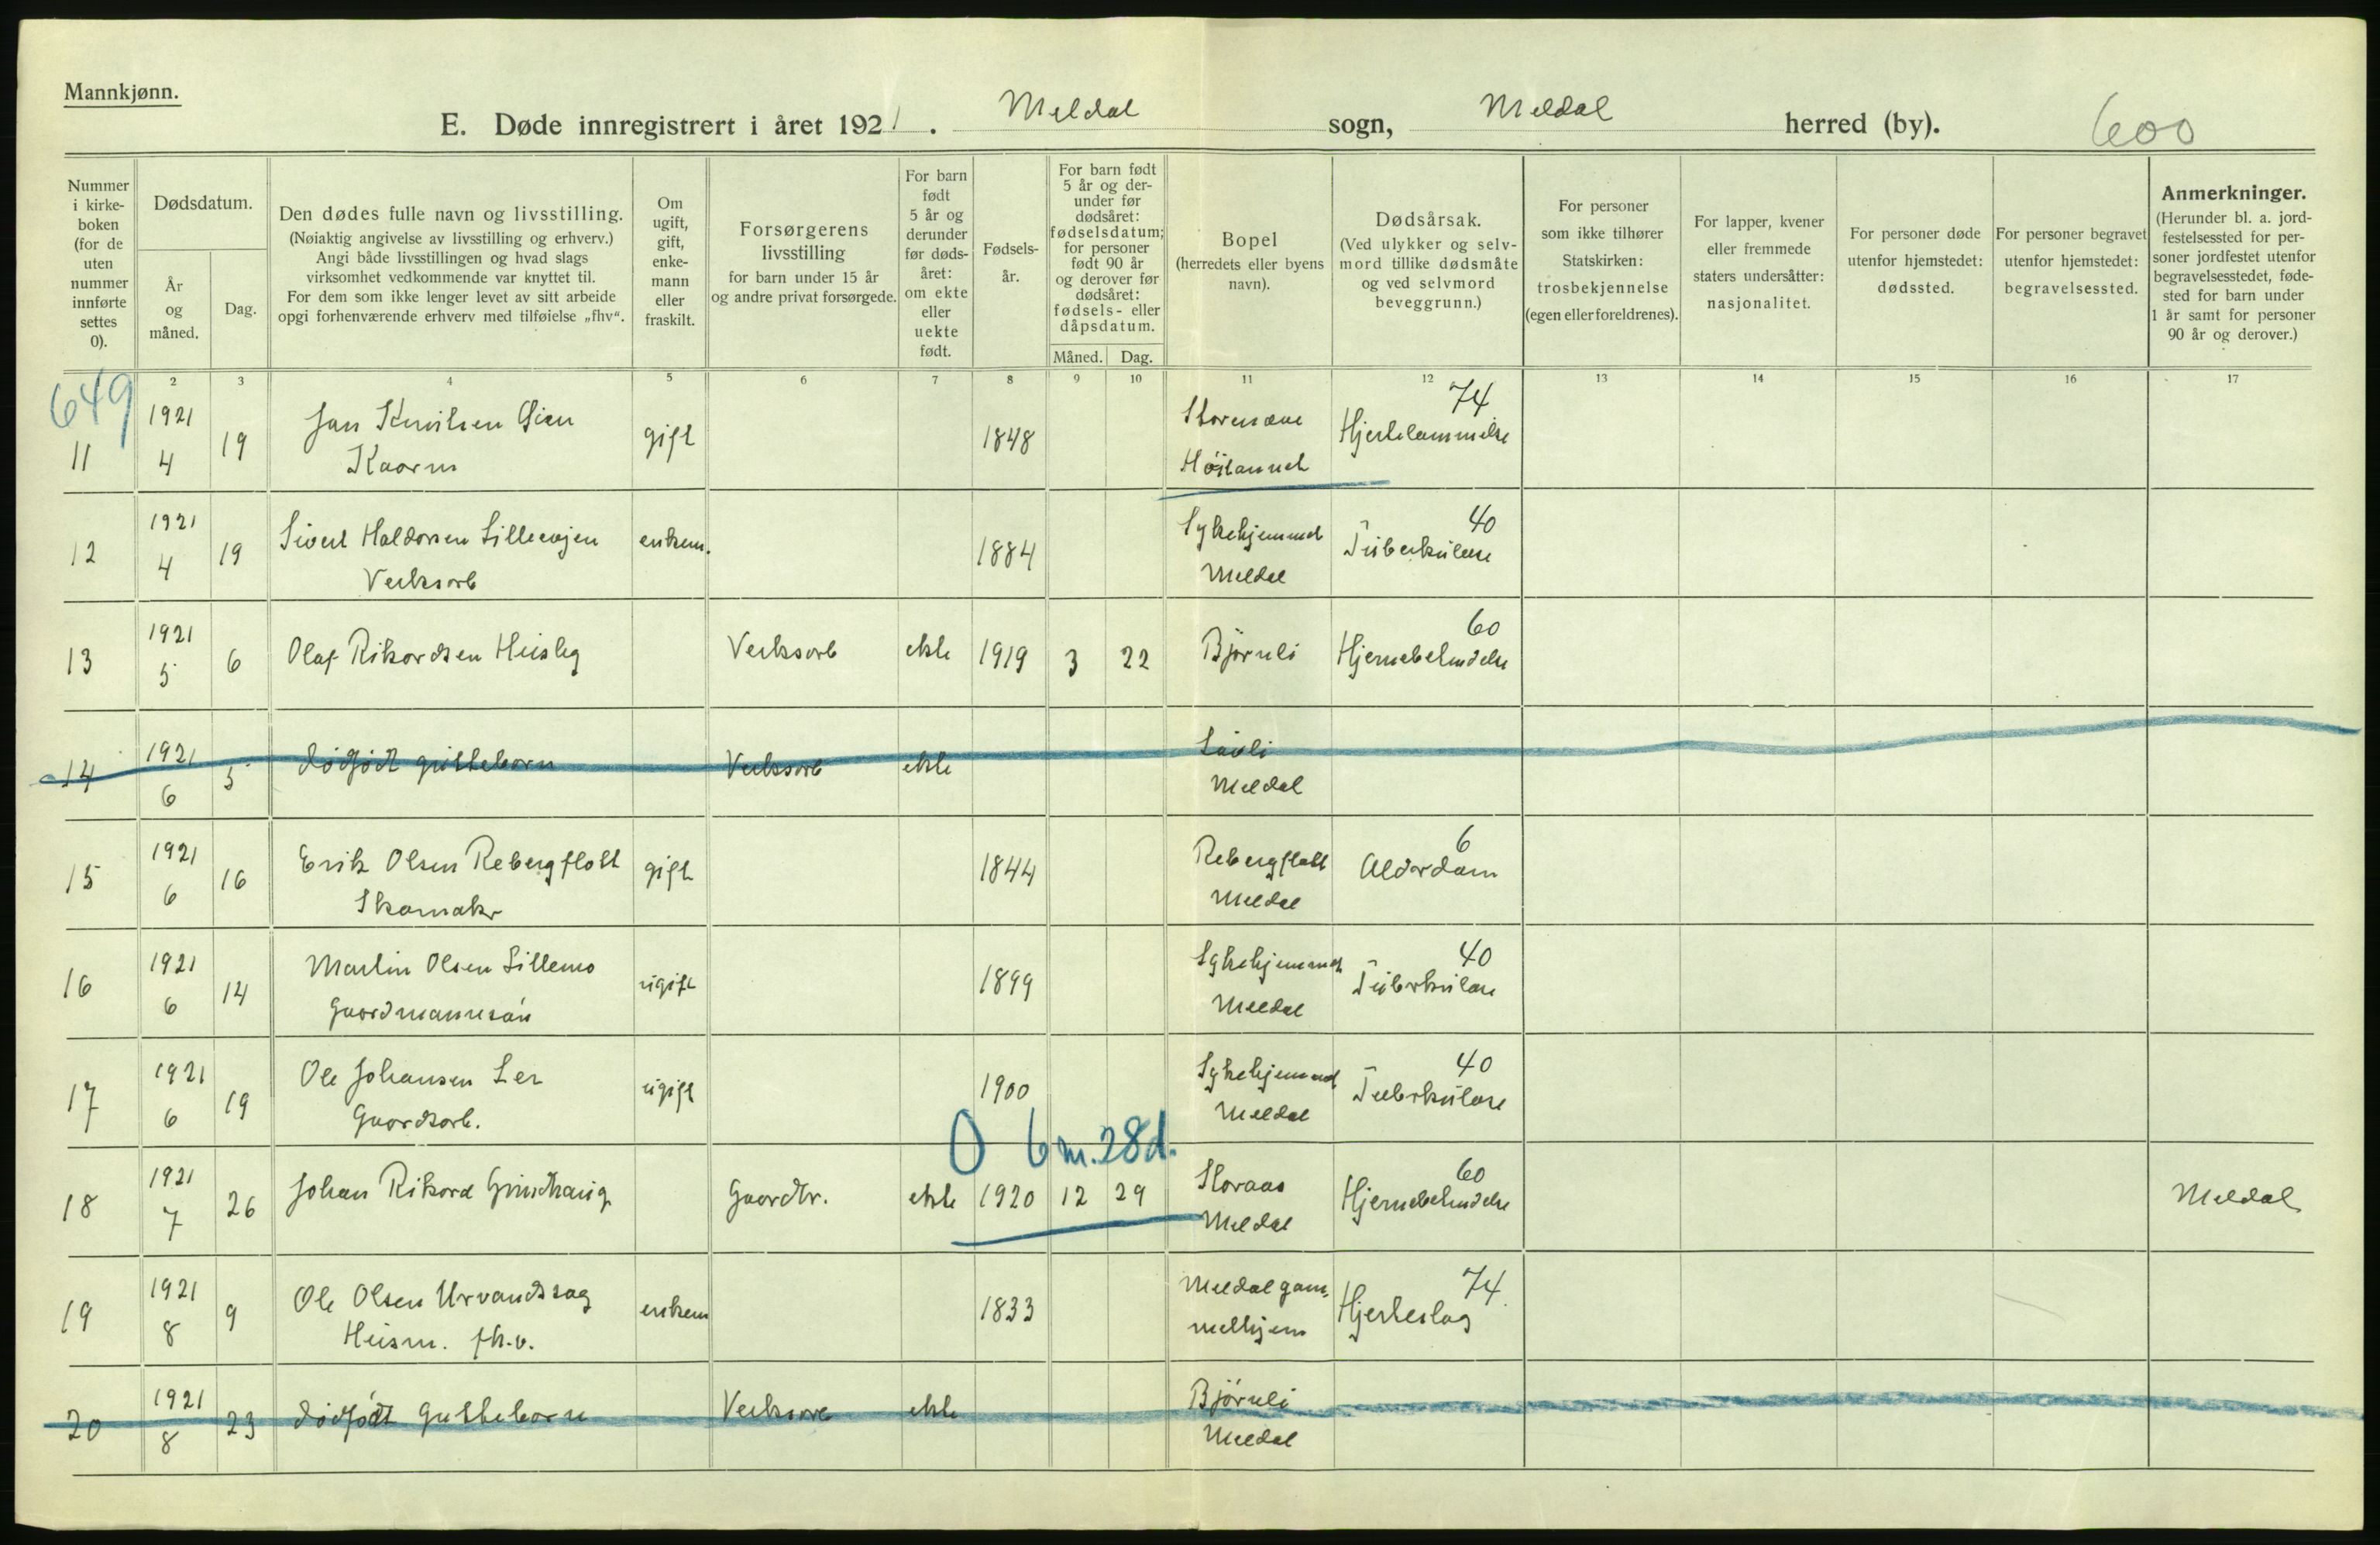 Mannkjønn.
E. Døde innregistrert i året 1921. Meldal sogn, Meldal herred (by). 600
Nummer i kirkeboken (for de uten nummer innførte settes 0).
Dødsdatum.
År og måned.
Dag.
Den dødes fulle navn og livsstilling.
(Nøiaktig angivelse av livsstilling og erhverv.)
Angi både livsstillingen og hvad slags
virksomhet vedkommende var knyttet til.
For dem som ikke lenger levet av sitt arbeide
opgi forhenværende erhverv med tilføielse „fhv“.
Om ugift, gift, enkemann eller fraskilt.
Forsørgerens livsstilling
for barn under 15 år
og andre privat forsørgede.
For barn født 5 år og derunder før dødsåret: om ekte eller uekte født.
Fødselsår.
For barn født 5 år og derunder før dødsåret: fødselsdatum; for personer født 90 år og derover før dødsåret: fødsels- eller dåpsdatum.
Måned. Dag.
Bopel
(herredets eller byens navn).
Dødsårsak.
(Ved ulykker og selvmord tillike dødsmåte og ved selvmord beveggrunn.)
For personer som ikke tilhører Statskirken: trosbekjennelse (egen eller foreldrenes).
For lapper, kvener eller fremmede staters undersåtter: nasjonalitet.
For personer døde utenfor hjemstedet: dødssted.
For personer begravet utenfor hjemstedet: begravelsessted.
Anmerkninger.
(Herunder bl. a. jordfestelsessted for personer jordfestet utenfor begravelsesstedet, fødested for barn under 1 år samt for personer 90 år og derover.)
2 3 4 5 6 7 8 9 10 11 12 13 14 15 16 17
649
11 1921 4 19 gift 1848 74
12 1921 4 19 Sivert Haldorsen Lilleevjen enkem. 1884 Sykehjemmet Tuberkulose 40
Verksarb Meldal
13 1921 5 6 Olaf Rikardsen Verksarb ekte 1919 3 22 Bjørnli Hjernebetendelse 60
14 1921 6 5 dødfødt guttebarn Verksarb ekte
Meldal
15 1921 6 16 Erik Olsen Rebergflott gift 1844 Rebergflott Alderdom 6
Skomaker Meldal
16 1921 6 14 Martin Olsen Lillemo ugift 1899 Sykehjemmet Tuberkulose 40
Gaardmannssøn Meldal
17 1921 6 19 Ole Johansen Ler ugift 1900 Sykehjemmet Tuberkulose 40
Gaardsarb. Meldal
0 6 m. 28 d.
18 1921 7 26 Johan Rikard Grindhaug Gaardbr. ekte 1920 12 29 Storaas Hjernebetendelse 60 Meldal
Meldal
19 1921 8 9 Ole Olsen Urvandssag enkem 1833 Meldal gam- Hjerteslag 74
Husm. fh.v. melhjem
20 1921 8 23 dødfødt guttebarn Verksarb ekte Bjørnli
Meldal